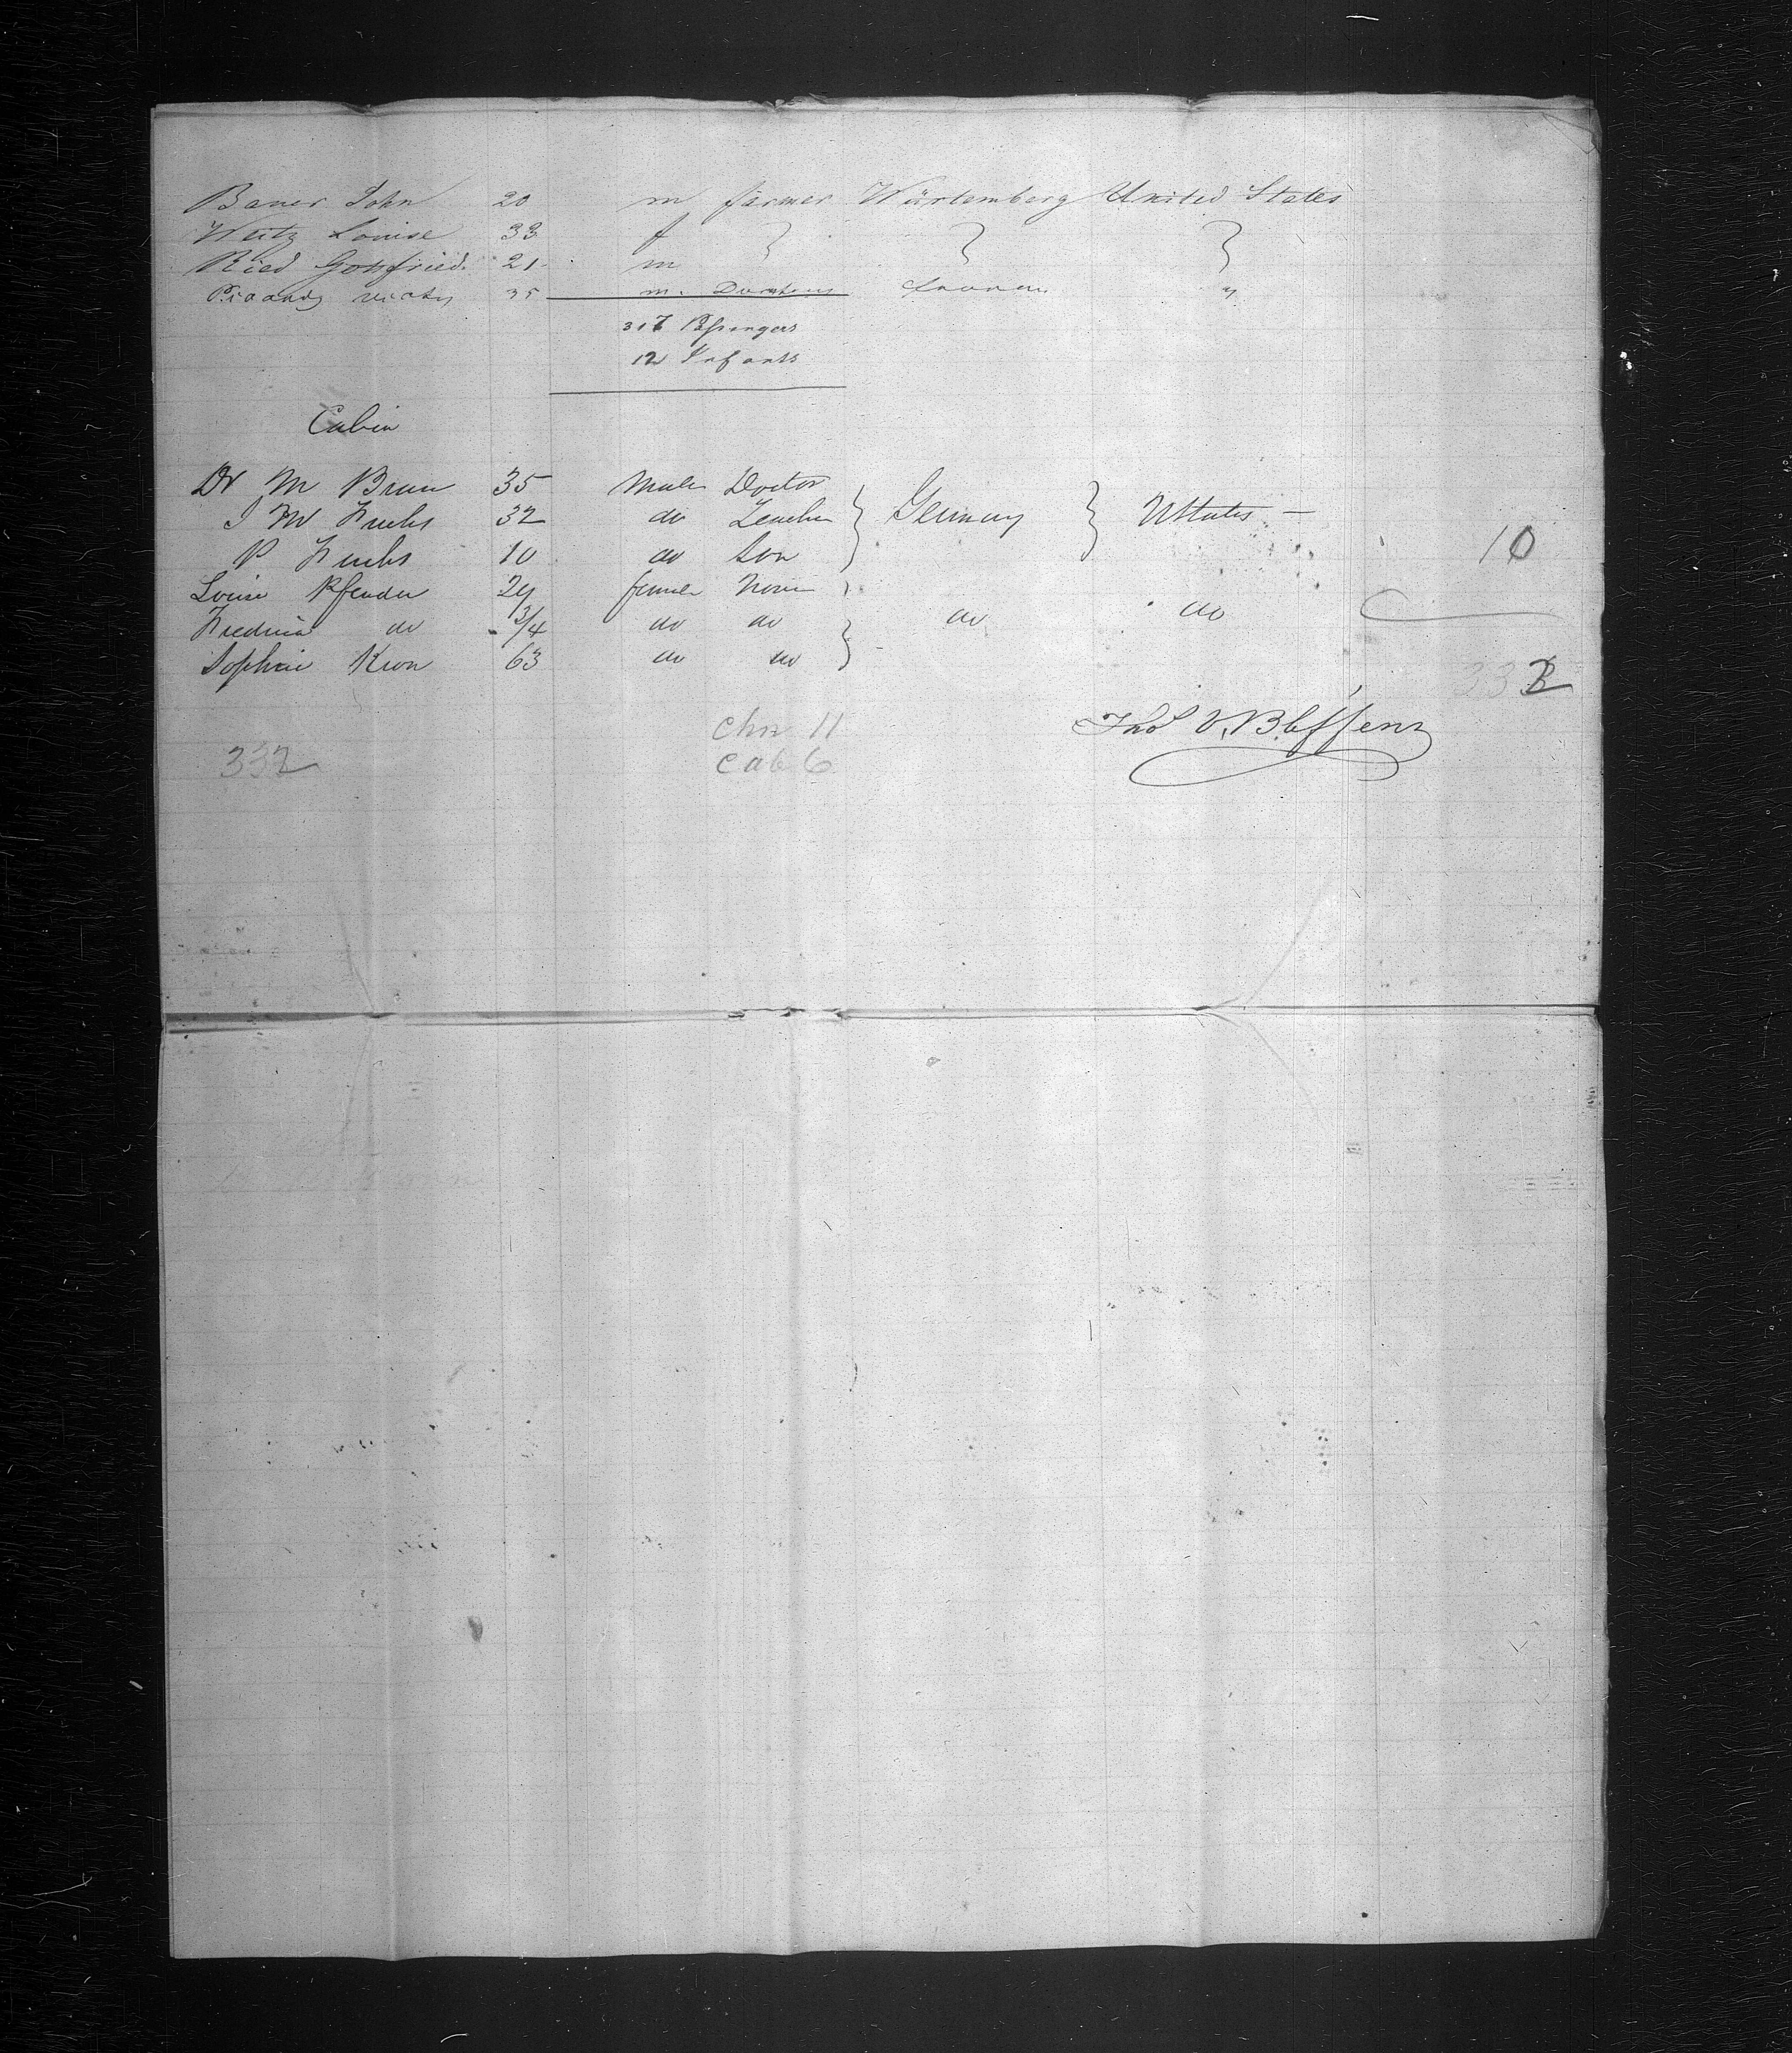 Bauer John 20 m farmer Würtemberg United States
Weitz Louise 33 f } } }
Ried Gottfried 21 m
35 m.  "
317 Passengers
12 Infants
Cabin
Dr M Brun 35 Male Doctor
J M Fuchs 32 do Teacher } Germany } UStates —
P Fuchs 10 do Son
10
Louise Pfender 29 female None
Fredrica do 3/4 do do } do do
Sophie Kron 63 do do
332
Chn 11
Cab 6
332